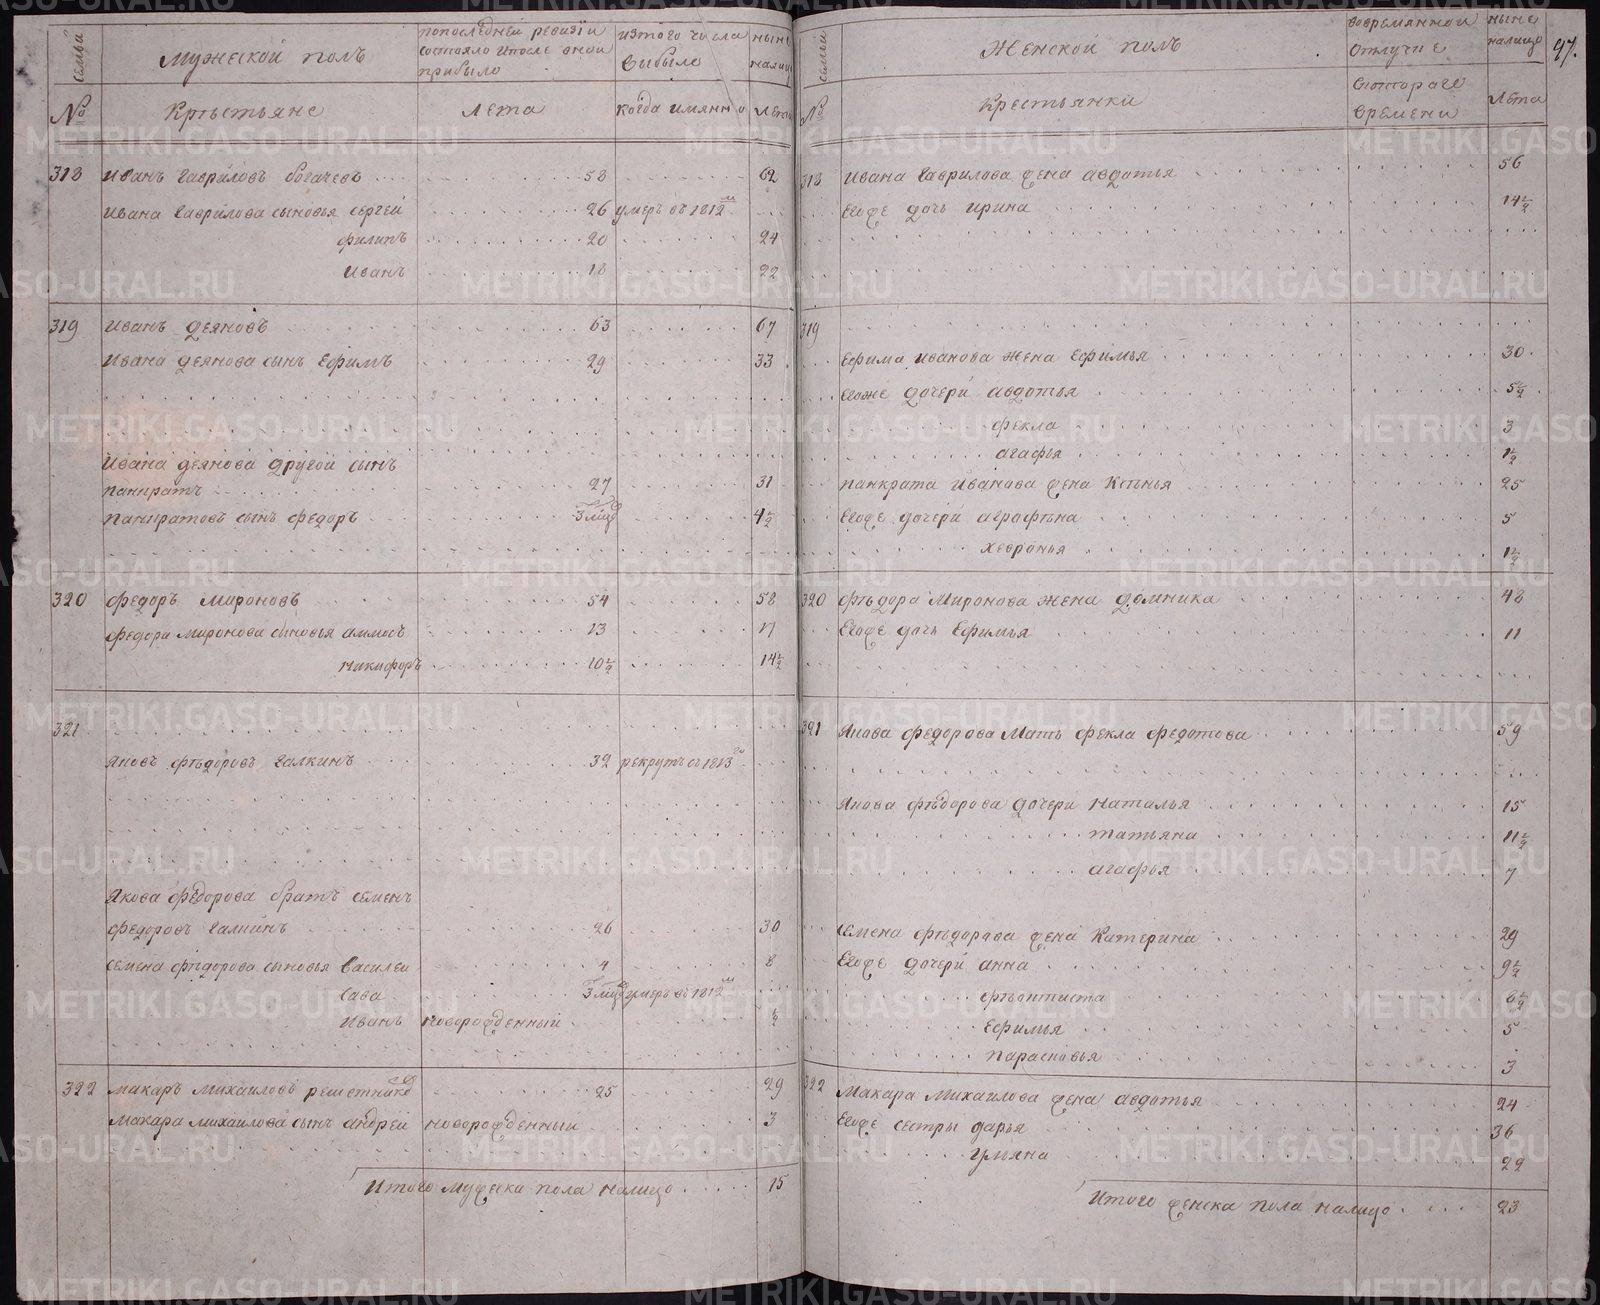 Семьи
Мужеской полъ
попоследней ревизiи состояло ипосле оной прибыло
изтого числа выбыло
ныне налицо
№
Крѣстьяне
Лета
когда имянно
Лета
318 Иванъ Гавриловъ богачевъ 58 62
Ивана Гаврилова сыновья сергей 26 умеръ въ 1812м
филипъ 20 24
Иванъ 18 22
319 Иванъ деяновъ 63 67
Ивана деянова сынъ Ефимъ 29 33
Ивана деянова другой сынъ
панкратъ 27 31
панкратовъ сынъ федоръ 3 мцовъ 4½
320 федоръ Мироновъ 54 58
федора миронова сыновья аммосъ 13 17
Никифоръ 10½ 14½
321
Яковъ фѣдоровъ Галкинъ 32 рекрутъ съ 1813го
Якова фѣдорова братъ семенъ
федоровъ Галкинъ 26 30
семена фѣдорова сыновья василеи 4 8
Сава 3 мцовъ умеръ въ 1812м
Иванъ новорожденный ½
322 макаръ михаиловъ решетниковъ 25 29
макара михаилова сынъ андреи новорожденный 3
Итого мужеска пола налицо 15
Семьи
Женской полъ
вовремянной отлучке
ныне налицо
97.
№
Крестьянки
скотораго времени
Лета
318 Ивана Гаврилова жена авдотья 56
Егоже дочь ирина 14½
319
Ефима иванова жена Ефимья 30
Егоже дочери авдотья 5½
фекла 3
агафья ½
панкрата Иванова жена Ксѣнья 25
Егоже дочери аграфѣна 5
хевронья 1½
320 фѣдора Миронова жена домника 48
Егоже дочь Ефимья 11
321 Якова федорова мать фекла федотова 59
Якова фѣдорова дочери Наталья 15
татьяна 11½
агафья 7
семена фѣдорава жена Катерина 29
Егоже дочери анна 9½
фѣоктиста 6½
Ефимья 5
парасковья 3
322 Макара Михаилова жена авдотья 24
Егоже сестры дарья 36
Ульяна 22
Итого женска пола налицо 23
METRIKI.GASO-URAL.RU